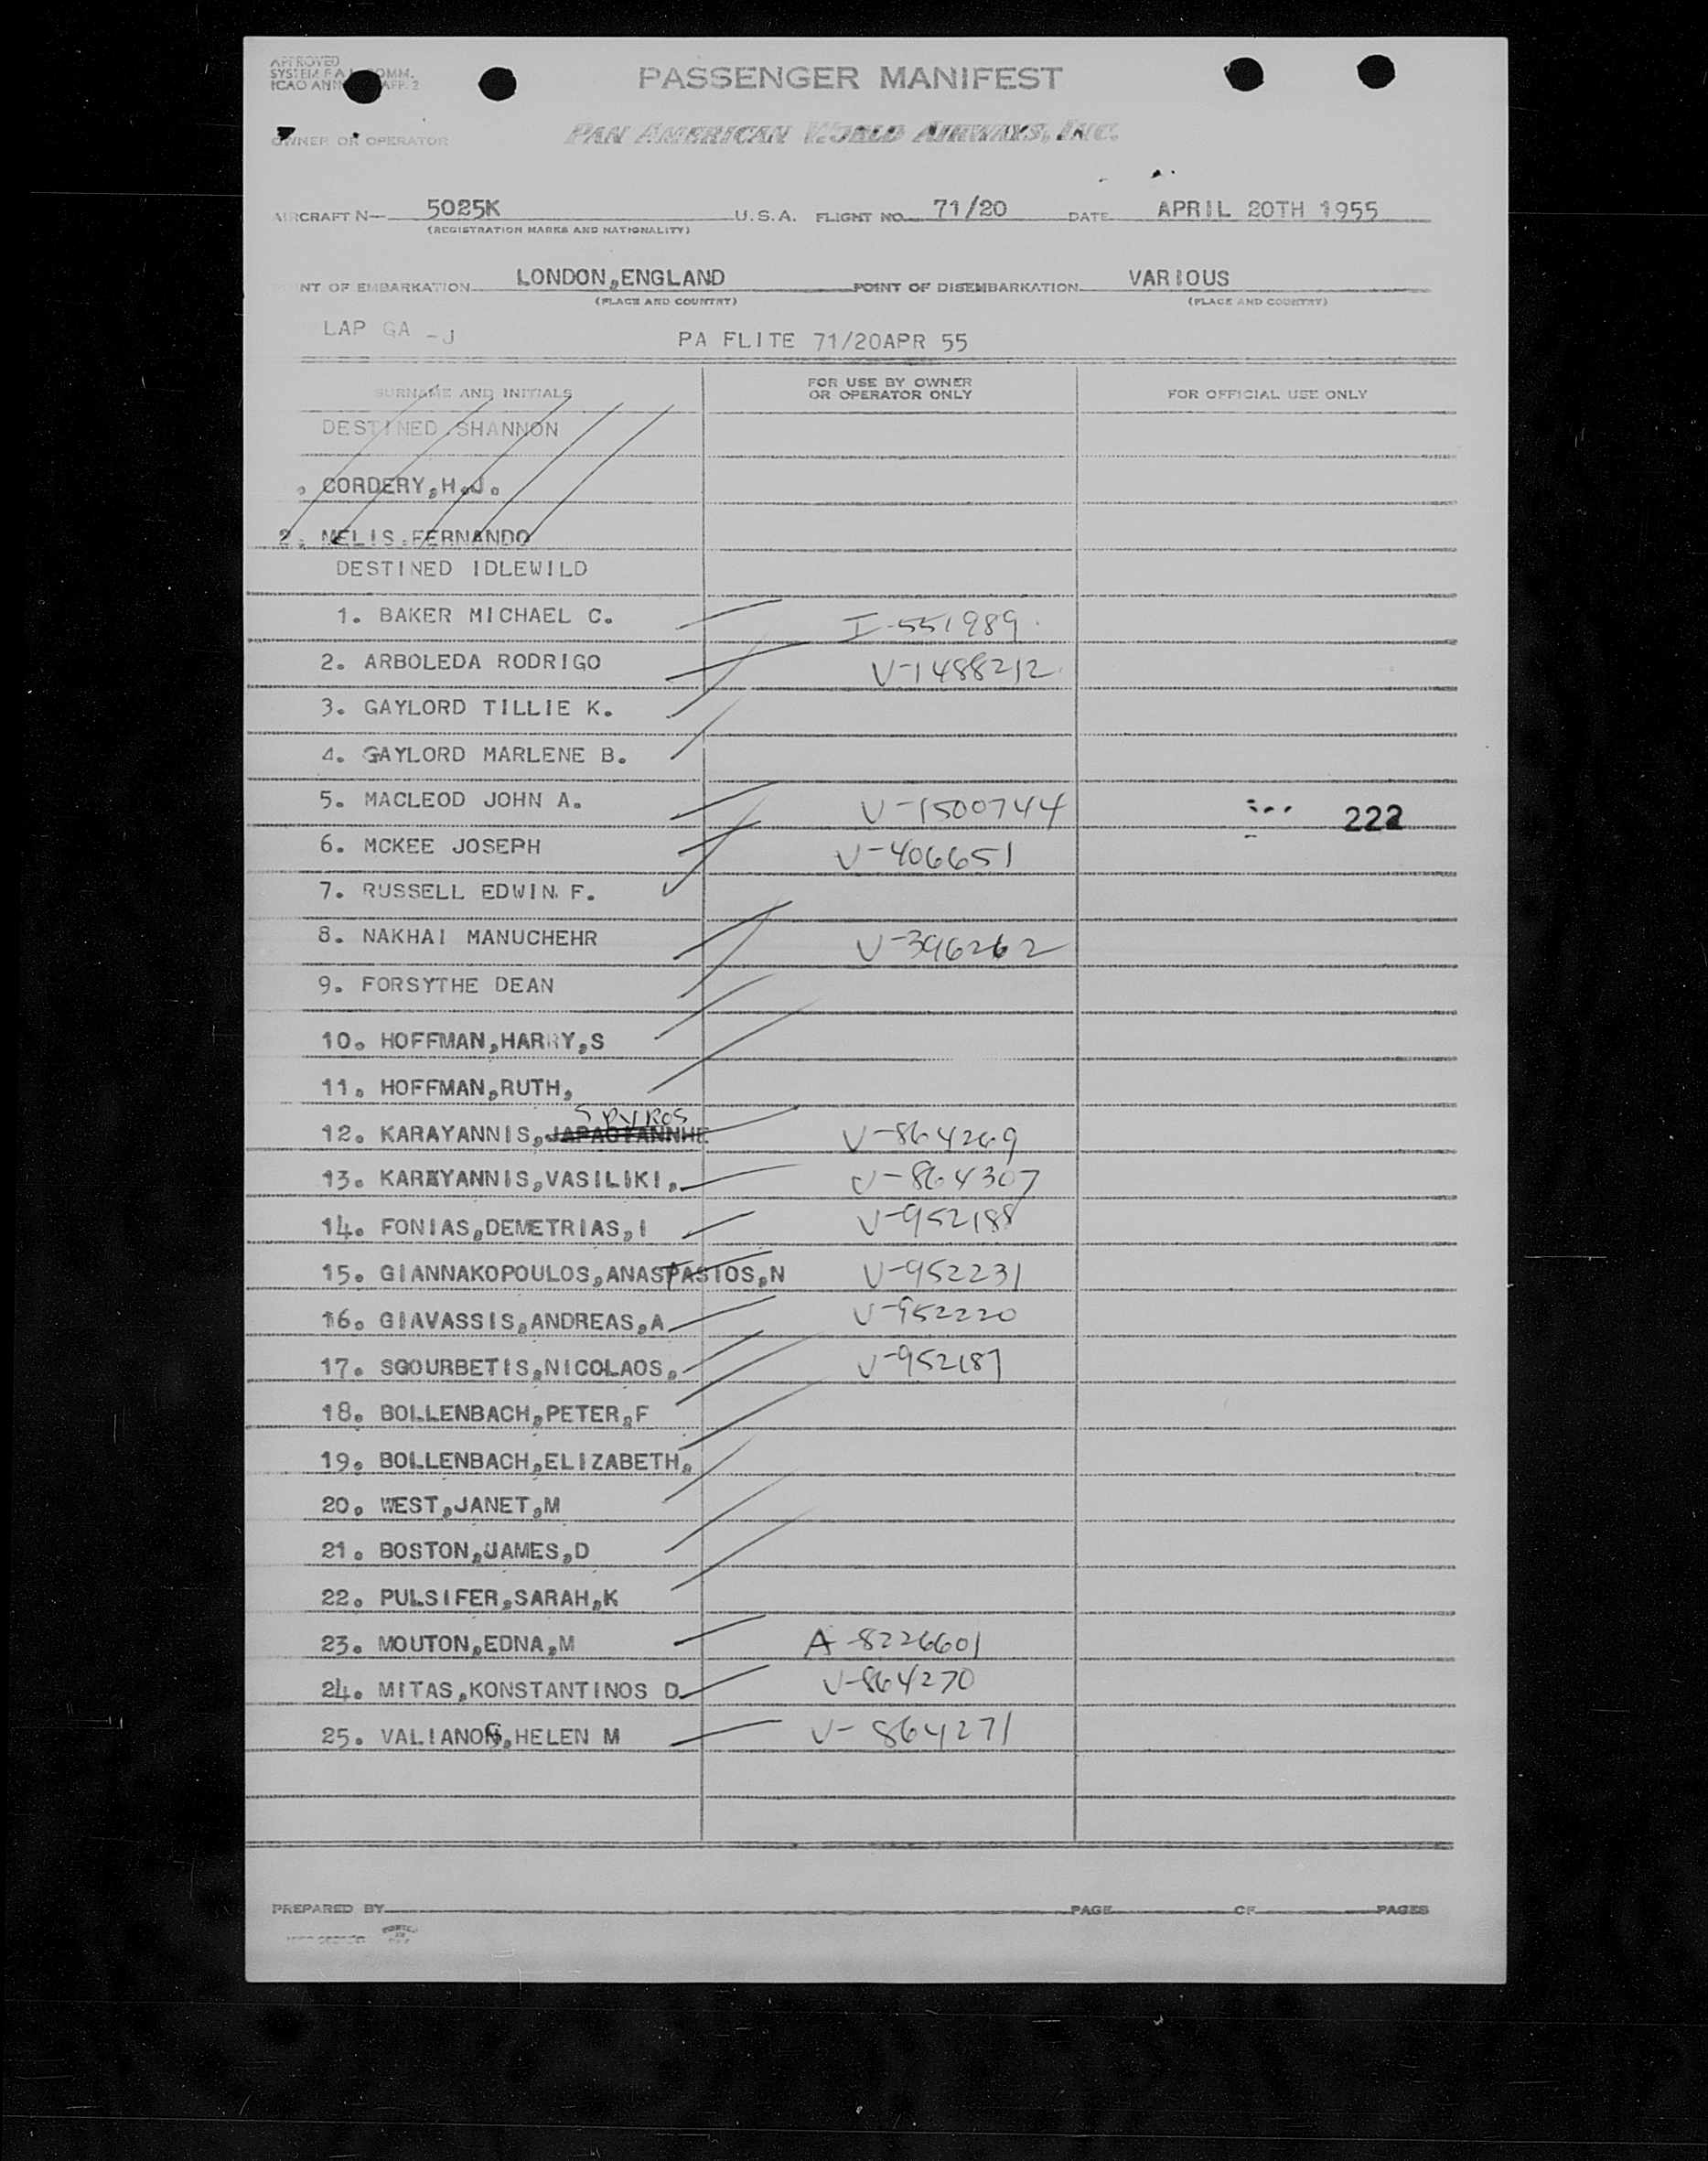 APPROVED
SYSTEM F A L COMM.
ICAO ANN APP. 2
PASSENGER MANIFEST
OWNER OR OPERATOR
PAN AMERICAN WORLD AIRWAYS, INC.
AIRCRAFT N— 5025K U.S.A. FLIGHT NO. 71/20 DATE APRIL 20TH 1955
(REGISTRATION MARKS AND NATIONALITY)
NT OF EMBARKATION LONDON,ENGLAND POINT OF DISEMBARKATION VARIOUS
(PLACE AND COUNTRY) (PLACE AND COUNTRY)
LAP GA -J PA FLITE 71/20APR 55
SURNAME AND INITIALS FOR USE BY OWNER OR OPERATOR ONLY FOR OFFICIAL USE ONLY
DESTINED SHANNON
. CORDERY,H.J.
2. MELIS.FERNANDO
DESTINED IDLEWILD
1. BAKER MICHAEL C. I-551989
2. ARBOLEDA RODRIGO V-1488212
3. GAYLORD TILLIE K.
4. GAYLORD MARLENE B.
5. MACLEOD JOHN A. V-1500744 222
6. MCKEE JOSEPH V-406651
7. RUSSELL EDWIN F.
8. NAKHAI MANUCHEHR V-396262
9. FORSYTHE DEAN
10. HOFFMAN,HARRY,S
11. HOFFMAN,RUTH,
SPYROS
12. KARAYANNIS, V-864269
13. KARAYANNIS,VASILIKI, V-864307
14. FONIAS,DEMETRIAS,I V-952188
15. GIANNAKOPOULOS,ANASTASIOS,N V-952231
16. GIAVASSIS,ANDREAS,A V-952220
17. SGOURBETIS,NICOLAOS, V-952187
18. BOLLENBACH,PETER,F
19. BOLLENBACH,ELIZABETH,
20. WEST,JANET,M
21. BOSTON,JAMES,D
22. PULSIFER,SARAH,K
23. MOUTON,EDNA,M A-8226601
24. MITAS,KONSTANTINOS D V-864270
25. VALIANOS,HELEN M V-864271
PREPARED BY PAGE OF PAGES